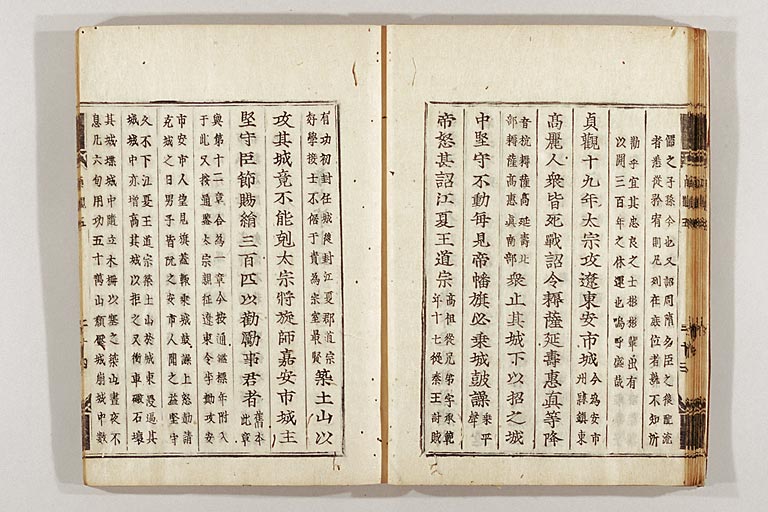 儒之子孫今也又詔周隋名臣之後配流
者悉從矜宥則凡列在庶位者孰不知所
勸乎宜其忠良之士彬彬輩出有
以開三百年之休運也嗚呼盛哉
貞觀十九年太宗攻遼東安市城今為安市州隸鎮東
高麗人衆皆死戰詔令耨薩延壽惠真等降
音抗耨薩高延壽北部耨薩高惠真南部衆止其城下以招之城
中堅守不動每見帝幡旗必乗城鼓譟乗平聲
帝怒甚詔江夏王道宗高祖從兄弟字承範年十七從秦王討賊
有功初封任城後封江夏郡道宗好學接士不倨于貴為宗室最賢築土山以
攻其城竟不能剋太宗將旋師嘉安市城主
堅守臣節賜絹三百匹以勸勵事君者舊本此章
與第十二章合為一章今按通鑑標年附入
于此又按通鑑太宗親征遼東令步勣攻安
市安市人望見旗蓋輒乗城鼓譟上怒勣請
克城之日男子皆阬之安市人聞之益堅守
久不下江夏王道宗築土山於城東畏逼其
城城中亦增高其城以拒之又衝車礮石壞
其城堞城中隨立木柵以塞之築山晝夜不
息凡六旬用功五十萬山頹壓城崩城中數